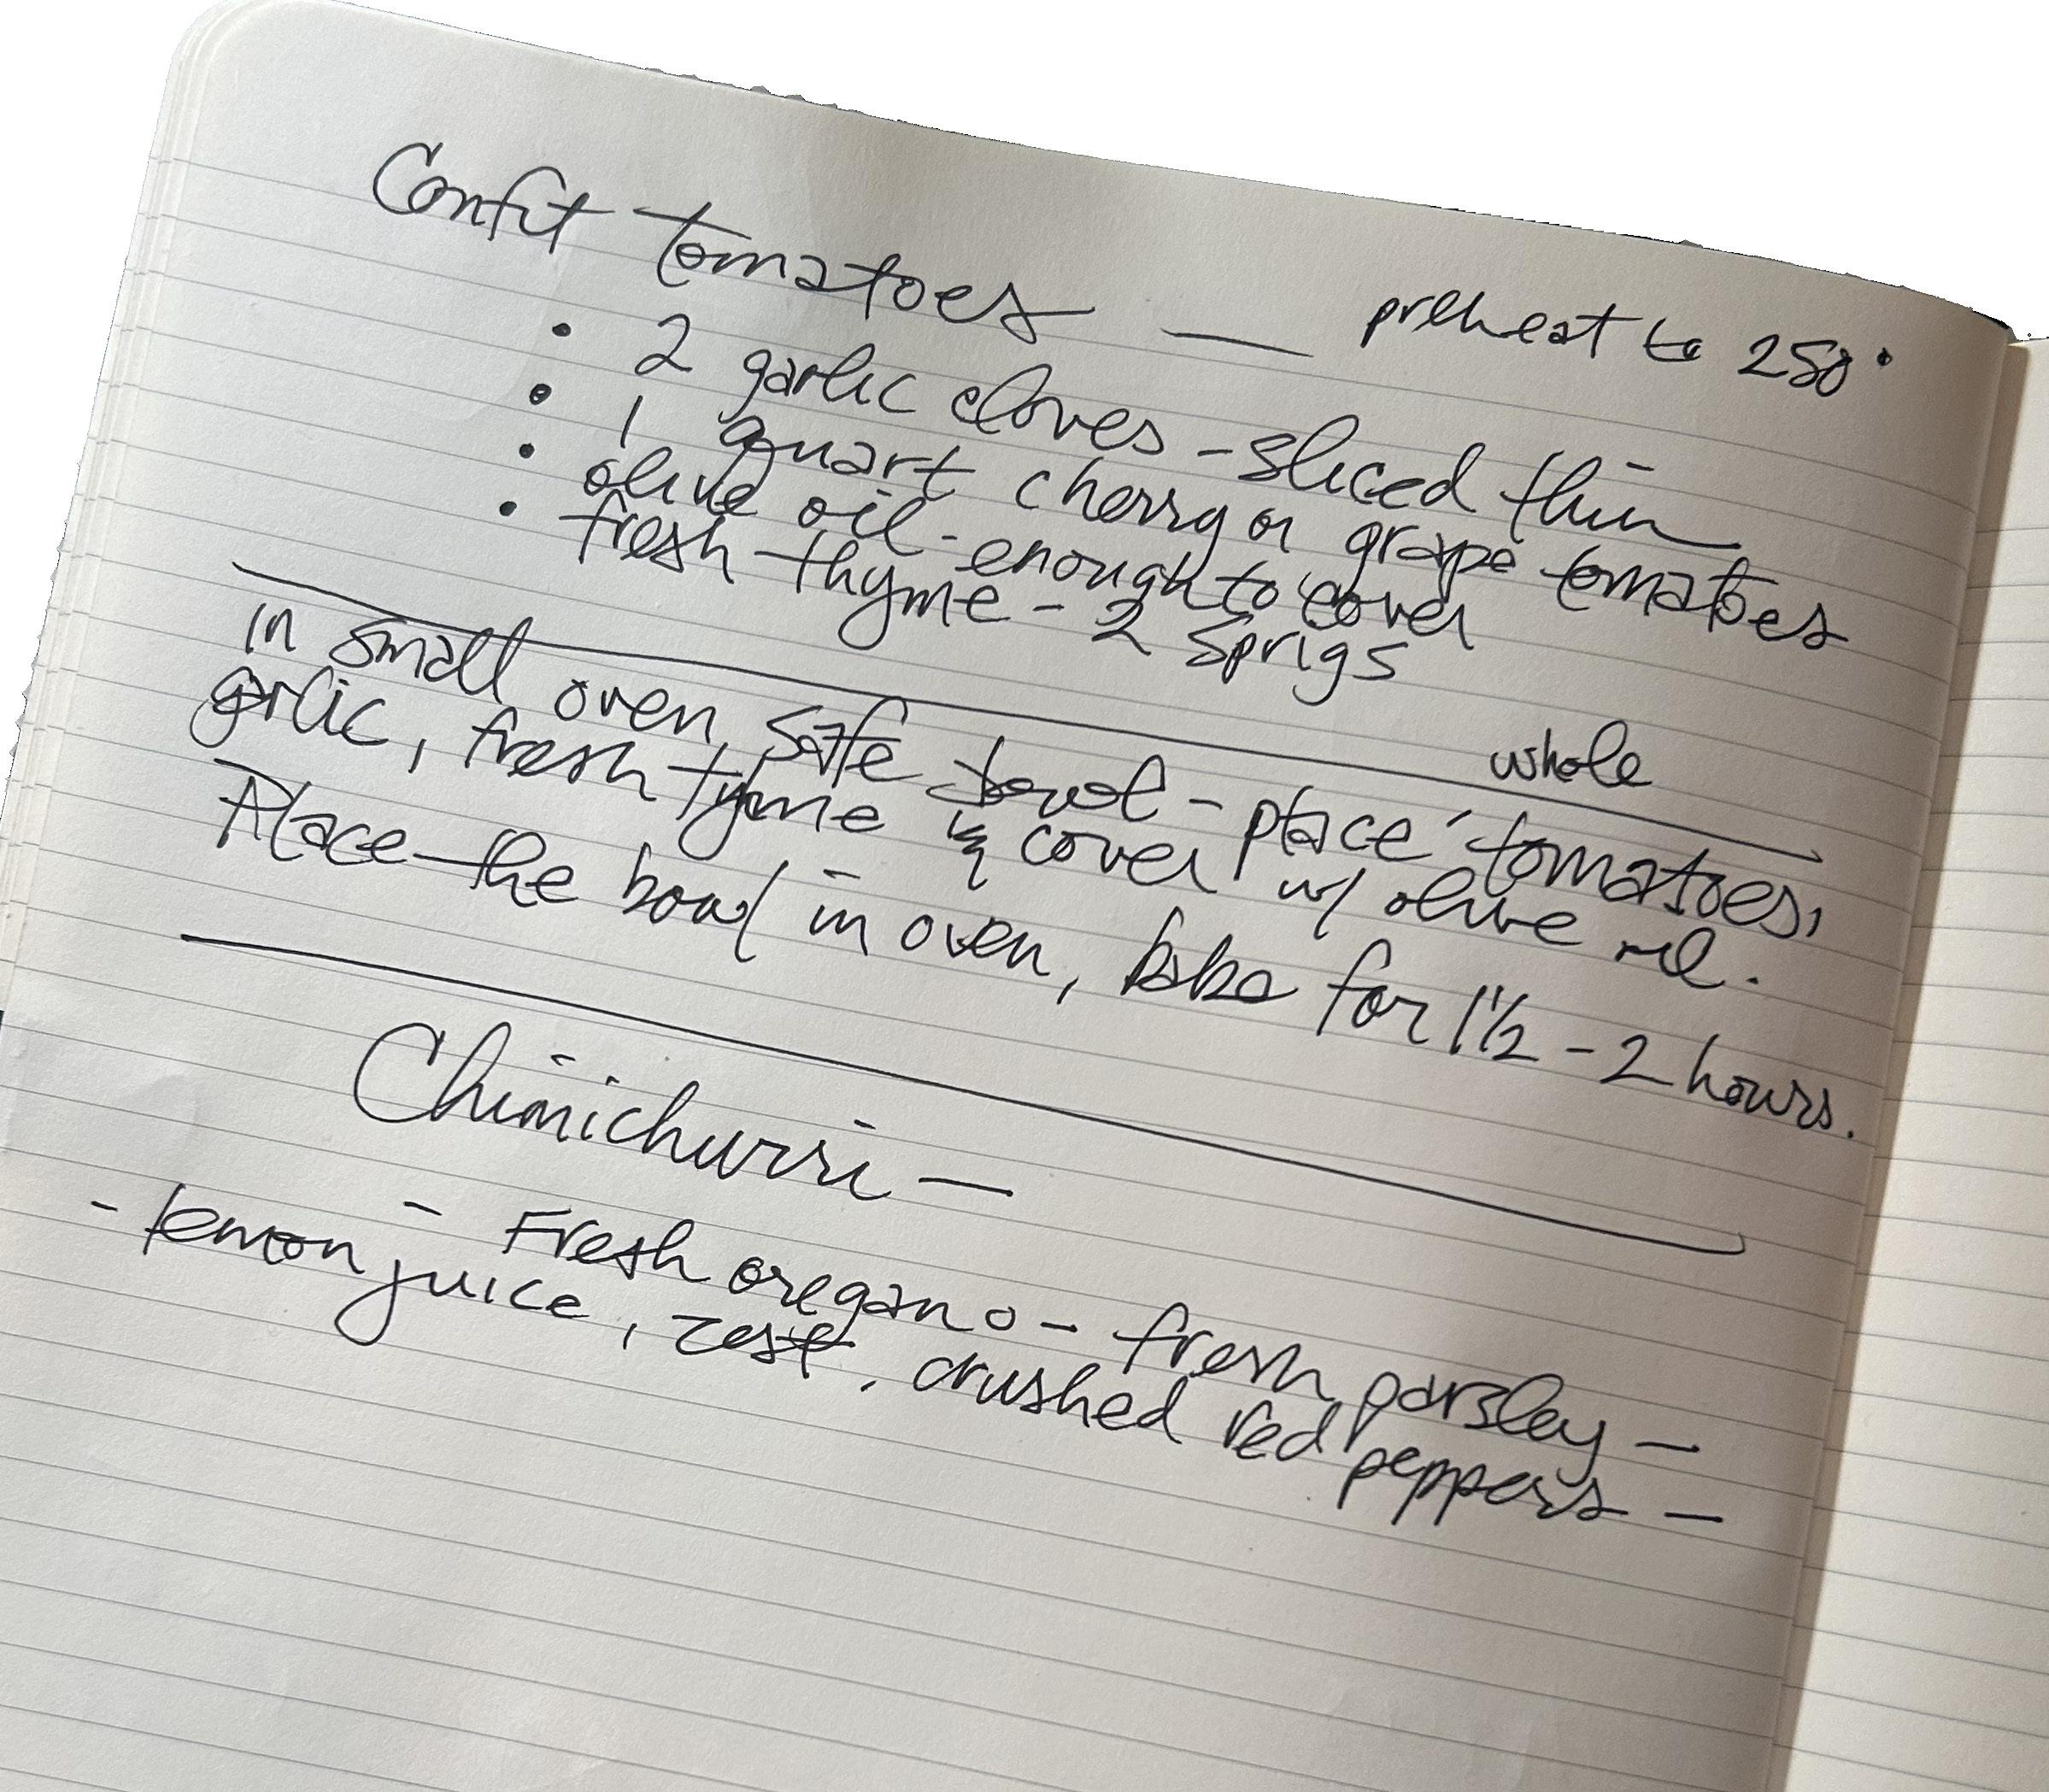 Confit tomatoes — preheat to 250°
• 2 garlic cloves - sliced thin
• 1 quart cherry or grape tomatoes
• olive oil - enough to cover
• fresh thyme - 2 sprigs
whole
in small oven safe bowl - place tomatoes,
garlic, fresh tyme & cover w/ olive oil.
Place the bowl in oven, bake for 1 1/2 - 2 hours.
Chimichurri —
- Fresh oregano - fresh parsley -
- lemon juice, zest, crushed red peppers -